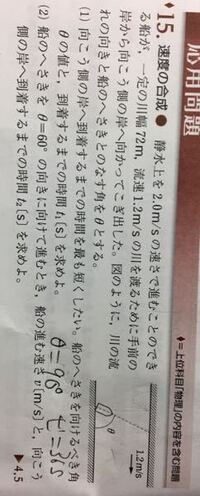 応用問題
◆=上位科目「物理」の内容を含む問題
◆15. 速度の合成 ● 静水上を 2.0m/s の速さで進むことのでき
る船が，一定の川幅 72m，流速 1.2m/s の川を渡るために手前の
岸から向こう側の岸へ向かってこぎ出した。図のように，川の流
れの向きと船のへさきとのなす角をθとする。
(1) 向こう側の岸へ到着するまでの時間を最も短くしたい。船のへさきを向けるべき角
θの値と，到着するまでの時間 t₁〔s〕を求めよ。
(2) 船のへさきを θ=60° の向きに向けて進むとき，船の進む速さ v〔m/s〕と，向こう
側の岸へ到着するまでの時間 t₂〔s〕を求めよ。
▶4,5
1.2m/s
θ
θ=90° t=36s